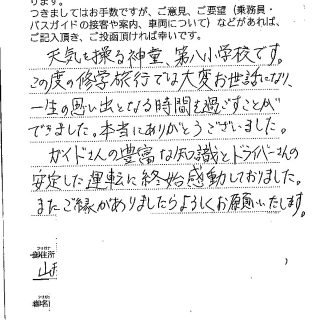 ります。
つきましてはお手数ですが、ご意見、ご要望（乗務員・
バスガイドの接客や案内、車両について）などがあれば、
ご記入頂き、ご投函頂ければ幸いです。
天気を操る神童、第八小学校です。
この度の修学旅行では大変お世話になり、
一生の思い出となる時間を過ごすことが
できました。本当にありがとうございました。
ガイドさんの豊富な知識とドライバーさんの
安定した運転に終始感動しておりました。
またご縁がありましたらよろしくお願いいたします。
フリガナ
御住所
山
フリガナ
御名